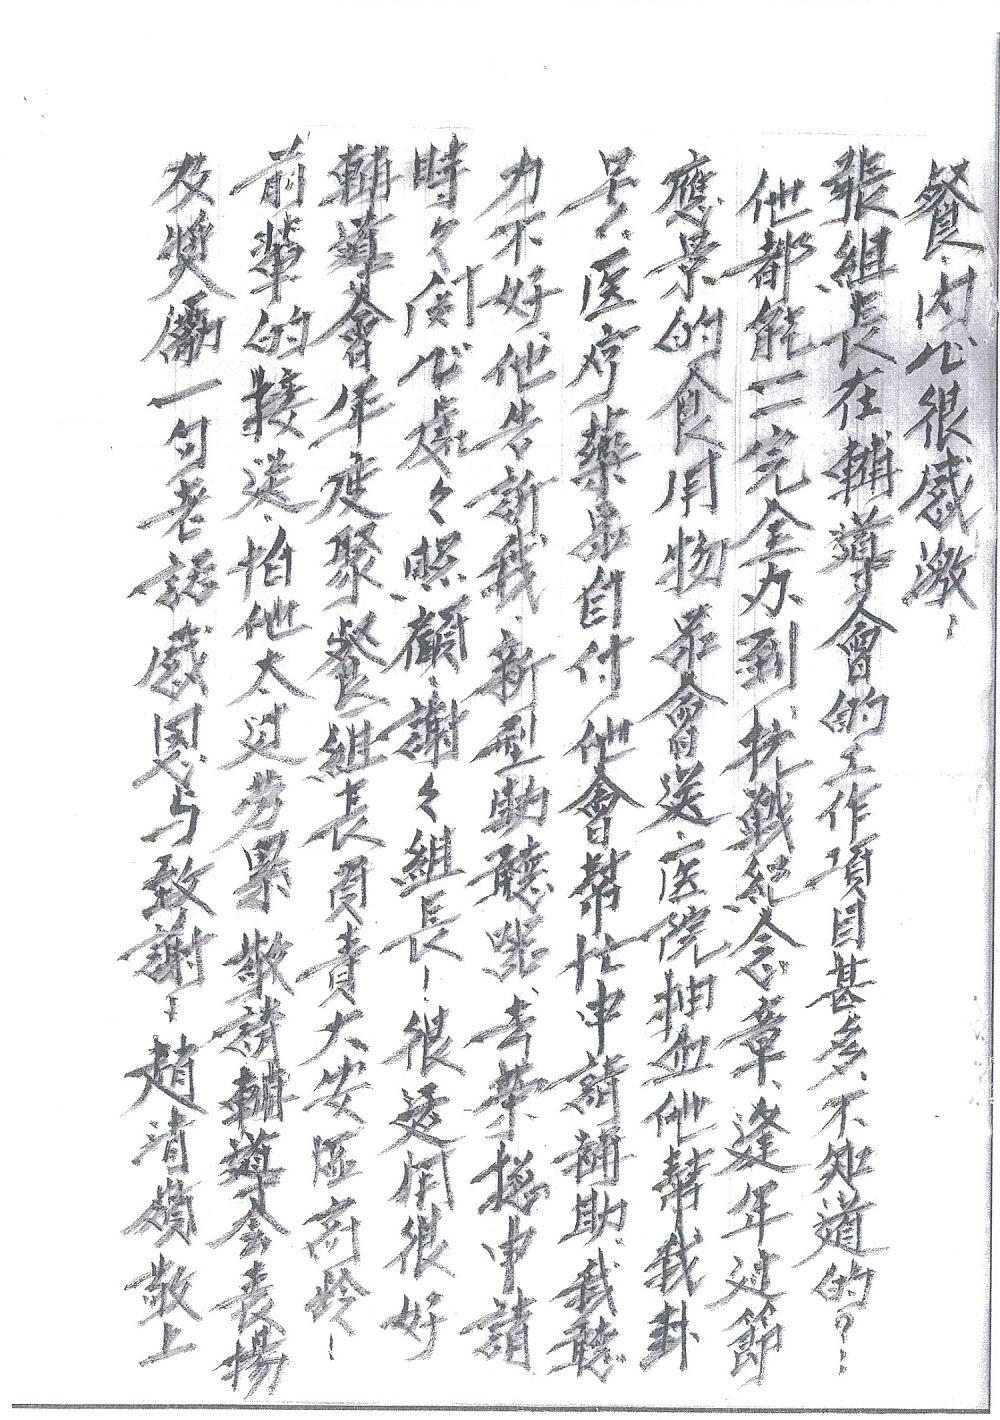 餐、内心很感激、
張組長在輔導會的工作項目甚多、不知道的？
他都能一一完全办到抗戰紀念章、逢年過節
應景的食用物品會送、医院抽血他幫我卦
号、医疗藥品自付他會幫忙申請輔助、我聽
力不好、他告訴我、新型助聽器、去荣總申請
時々関心處々照顧、謝々組長、很适用很好
輔導會年度聚餐組長負責大安區高龄、
前輩的接送、怕他太过劳累敬請輔導会表揚
及獎勵一句老話感恩与致謝、趙清 敬上